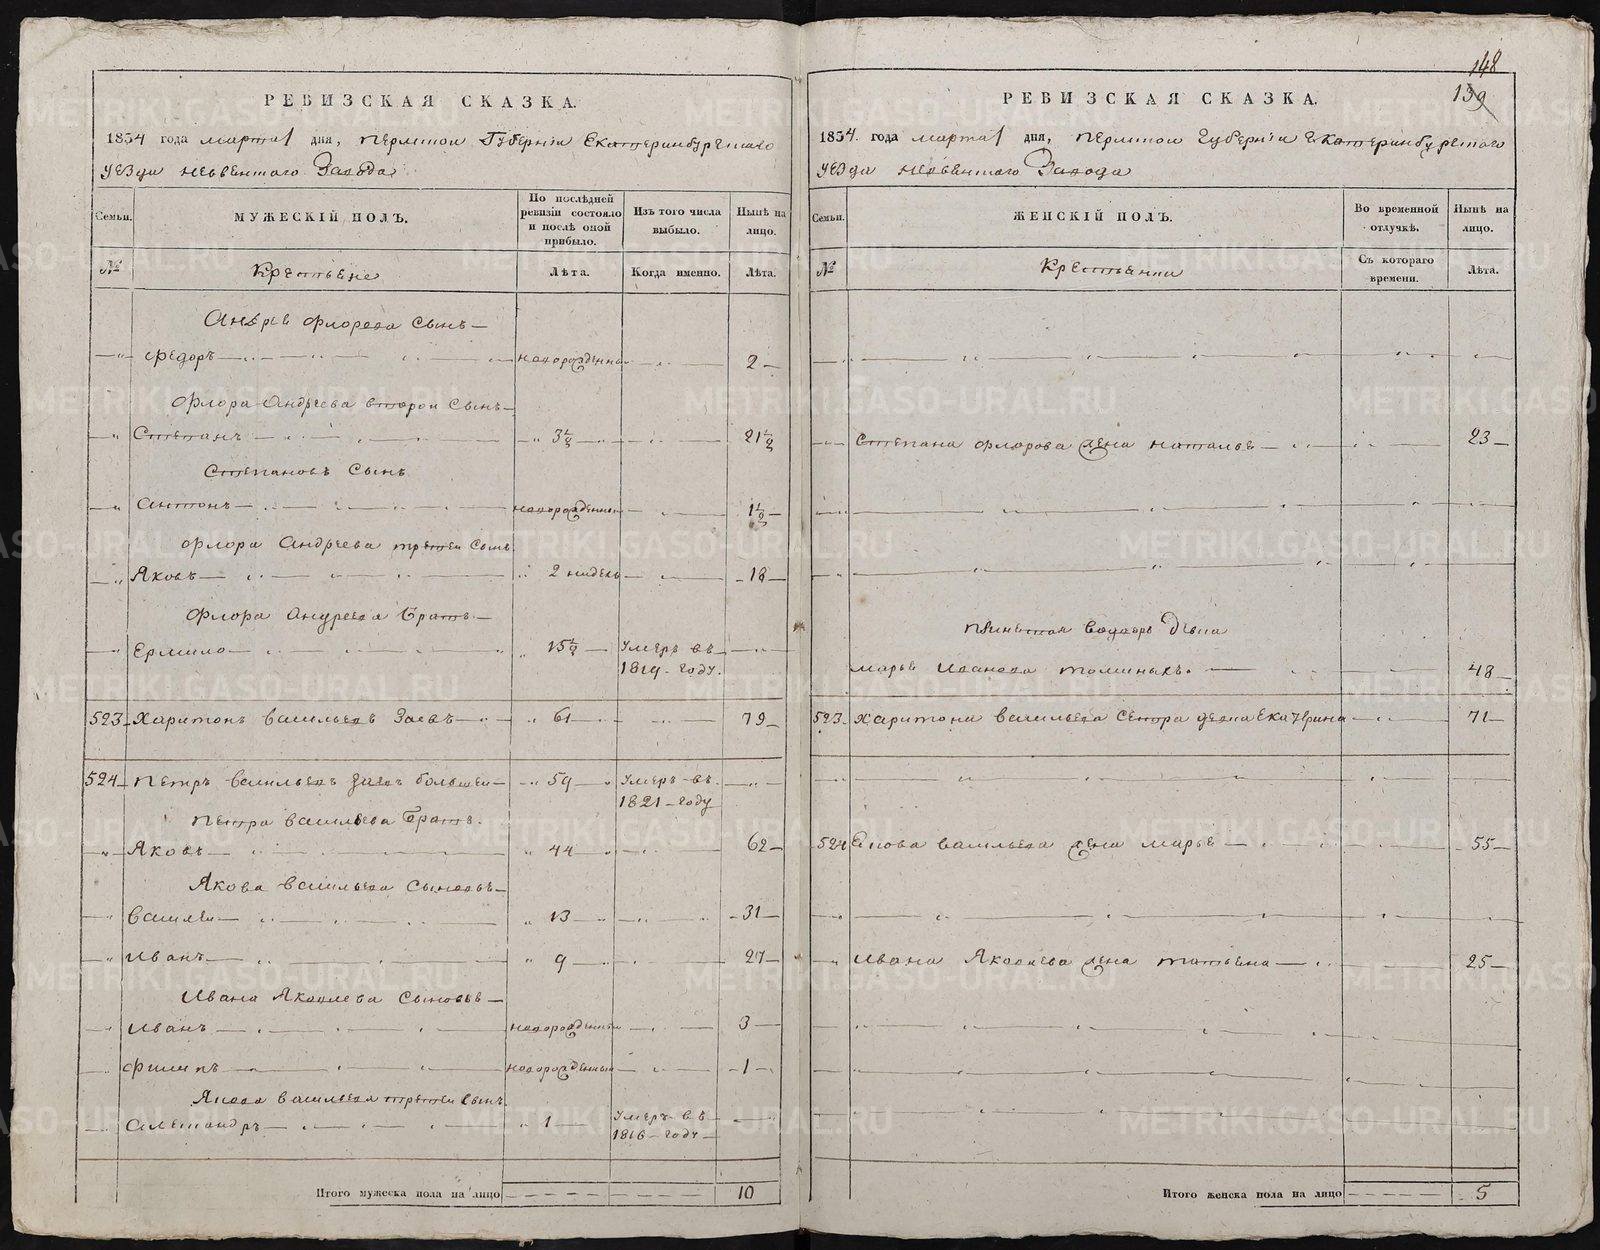 148
139
РЕВИЗСКАЯ СКАЗКА.
1834 года марта 1 дня, Пермской Губернiи Екатеринбургскаго
уезда невьенскаго Завода
Семьи.
МУЖЕСКIЙ ПОЛЪ.
По послѣдней ревизiи состояло и послѣ оной прибыло.
Изъ того числа выбыло.
Нынѣ на лицо.
№
Крестьене
Лѣта.
Когда именно.
Лѣта.
Андрея Флорова Сынъ —
— „ Федоръ — новорожденной — 2 —
Флора Андреева второй Сынъ —
„ Степанъ — „ 3½ — 21½
Степановъ Сынъ
„ Антонъ — новорожденной — 1½ —
Флора Андреева третей Сынъ
„ Яковъ — 2 нидель — 18 —
Флора Андреева Братъ —
Ермило — „ 15½ — Умеръ въ
1819 году.
523 Харитонъ Васильевъ Заевъ — „ 61 — 79 —
524 Петръ Васильевъ Заевъ большей — „ 59 „ Умеръ въ
1821 году
Петра Васильева Братъ.
„ Яковъ — „ 44 — 62 —
Якова Васильева Сыновья —
„ Василей — „ 13 — 31 —
„ Иванъ — „ 9 — 27 —
Ивана Яковлева Сыновья —
„ Иванъ — новорожденный — 3 —
Филипъ — новорожденный — 1 —
Якова Васильева третей Сынъ
Александръ — „ 1 — Умеръ въ
1816 году —
Итого мужеска пола на лицо 10
РЕВИЗСКАЯ СКАЗКА.
1834. года марта 1 дня, Пермской Губернiи Екатеринбургскаго
уезда невьенскаго Завода
Семьи.
ЖЕНСКIЙ ПОЛЪ.
Во временной отлучкѣ.
Нынѣ на лицо.
№
Крестьенки
Съ котораго времени.
Лѣта.
Степана Флорова жена Наталье — 23 —
Марье Иванова — 48 —
523. Харитона Васильева Сестра девка Екатерина — 71 —
524 Якова Васильева жена Марье — 55 —
„ Ивана Яковлева жена Татьена — 25 —
Итого женска пола на лицо 5
METRIKI.GASO-URAL.RU